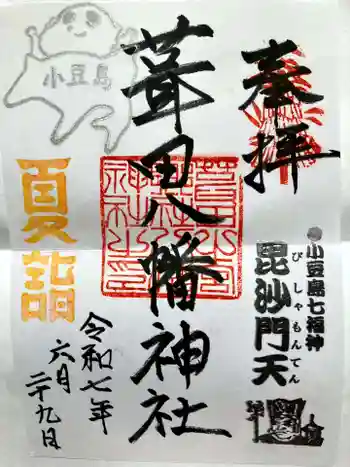 奉拝
小豆島七福神
毘沙門天
びしゃもんてん
葺田八幡神社
小豆島
夏詣
令和七年
六月
二十九日